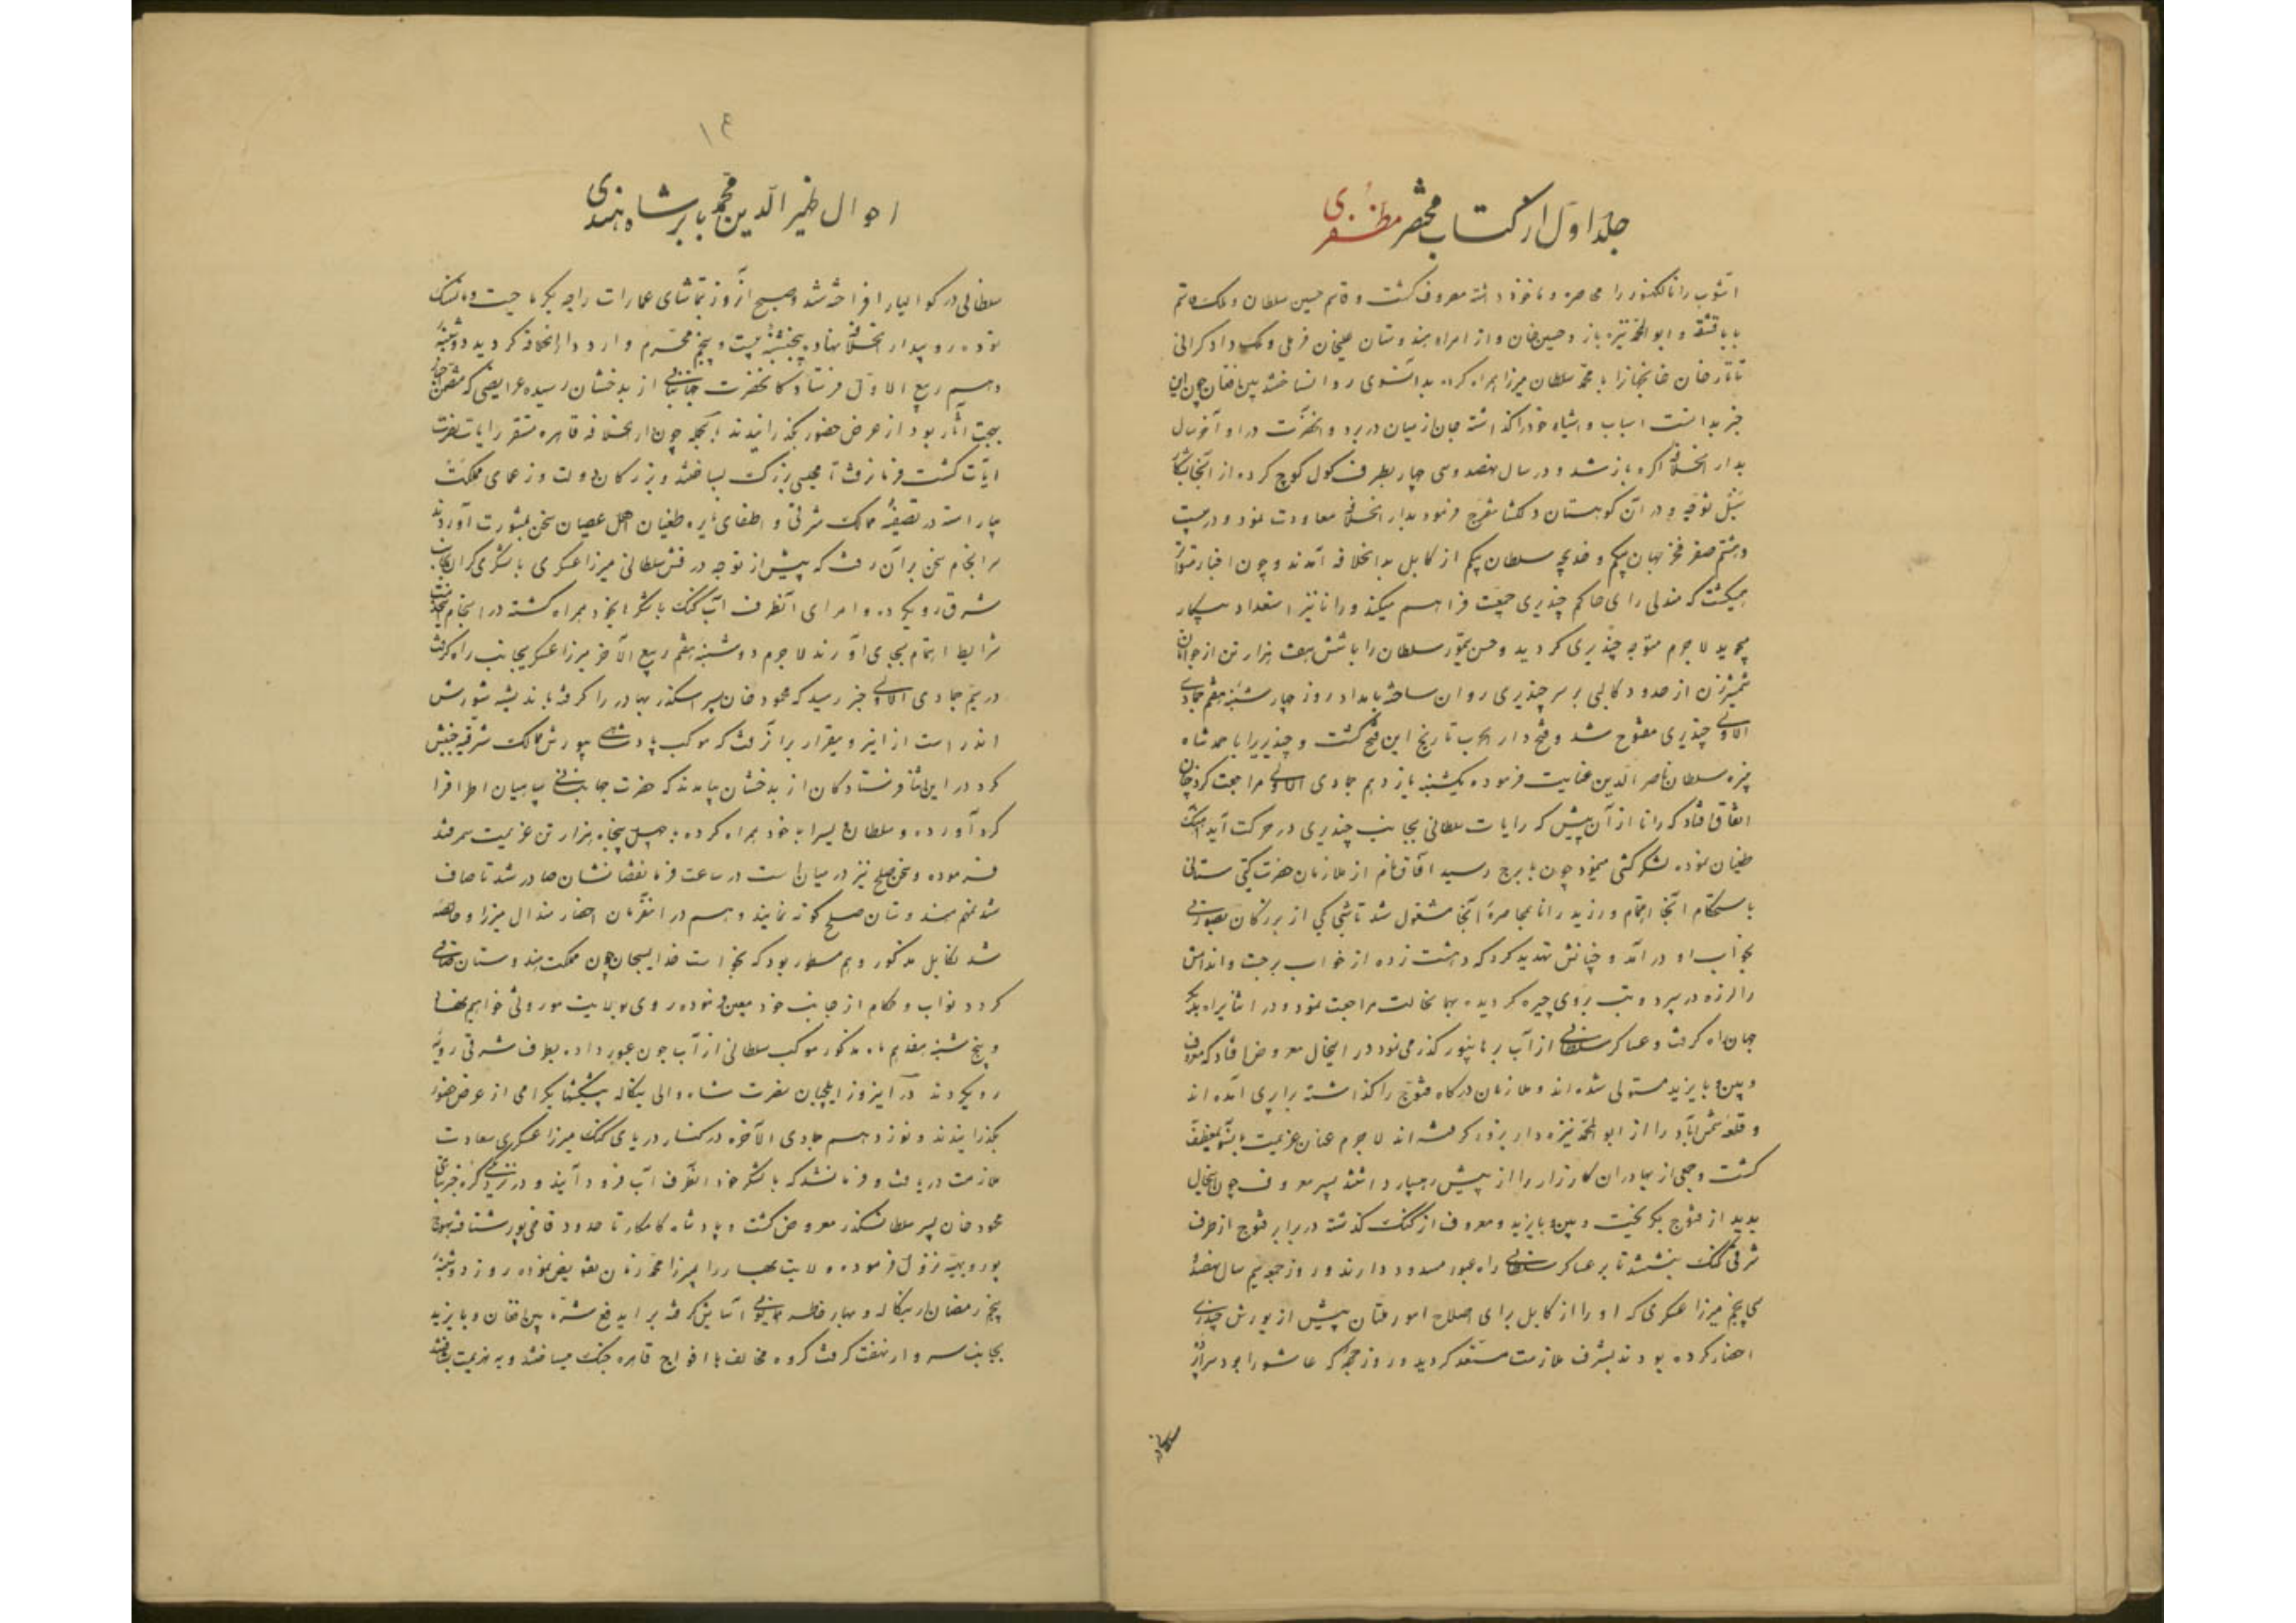 جلد اول از کتاب مختصر مظفری
آشوب رانا لکنور را محاصره و ماخوذ داشته معروف گشت و قاسم حسین سلطان و ملک قاسم
بابا قشقه و ابوالمحمد نیزه باز و حسین خان و از امراء هندوستان علیخان فرملی و ملک داد کرانی
تاتار خان خانجهانرا با محمد سلطان میرزا همراه کرده بدانسوی روانه ساختند بین افغان چون این
خبر بدانست اسباب و اشیاء خود را گذاشته جان از میان در برد و آنحضرت در اواخر سال
بدار الخلافه اگره باز شد و در سال نهصد و سی چهار بطرف کول کوچ کرده از آنجا بشکار
سنبل توجه و در آن کوهستان دلگشا تفرج فرمود بدار الخلافه معاودت نمود و در بیست
و هشتم صفر فخر جهان بیگم و خدیجه سلطان بیگم از کابل بدار الخلافه آمدند و چون اخبار متواتر
میگشت که مندلی رای حاکم چندیری جمعیت فراهم میکند و رانا نیز استعداد پیکار
میجوید لاجرم متوجه چندیری گردید و حسن تیمور سلطان را با شش هفت هزار تن از جوانان
شمشیرزن از حدود کالپی بر سر چندیری روان ساخته بامداد روز چهارشنبه هفتم جمادی
الاولی چندیری مفتوح شد و فتح دار الحرب تاریخ این فتح گشت و چندیری را باحمد شاه
نبیره سلطان ناصر الدین عنایت فرموده یکشنبه یازدهم جمادی الاولی مراجعت کرد چنان
اتفاق افتاد که رانا از آن پیش که رایات سلطانی بجانب چندیری در حرکت آید آهنگ
طغیان نموده لشکر کشی مینمود چون بایرج رسید آفاق نام از ملازمان حضرت گیتی ستانی
باستحکام آنجا اهتمام ورزید رانا بمحاصرۀ آنجا مشغول شد تا شبی یکی از بزرگان بصورتی
بخواب او در آمد و چنانش تهدید کرد که دهشت زده از خواب برجست و اندامش
را لرزه در سپرد و تب بروی چیره گردیده بهمان حالت مراجعت نمود و در اثنای راه بدیگر
جهان راه گرفت و عساکر سلطانی از آب برهانپور گذر می نمود در اینحال معروض افتاد که معروف
و بین و بایزید مستولی شده اند و ملازمان درگاه قنوج را گذاشته برابری آمده اند
و قلعه شمس آباد را از ابوالمحمد نیزه دار بزور گرفته اند لاجرم عنان عزیمت بانسو منعطف
گشت و جمعی از بهادران کارزار را از پیش رهسپار داشتند پسر معروف چون اینحال
بدید از قنوج بگریخت و بین و بایزید و معروف از گنگ گذشته در برابر قنوج از طرف
شرقی گنگ بنشستند تا بر عساکر سلطانی راه عبور مسدود دارند و روز جمعه سیم سال نهصد و
سی پنجم میرزا عسکری که او را از کابل برای اصلاح امور ملتان پیش از یورش چندیری
احضار کرده بودند بشرف ملازمت مستسعد گردید و روز جمعه که عاشورا بود سراپردۀ
سلطانی
۱۴
احوال ظهیر الدین محمد بابر شاه هندی
سلطانی در گوالیار افراخته شد و صبح آنروز بتماشای عمارات راجه بکرماجیت و مانسنگ
نموده رو بدار الخلافه نهاد و پنجشنبه بیست و پنجم محرم وارد دار الخلافه گردید دوشنبه
دهم ربیع الاول فرستادگان حضرت جهانبانی از بدخشان رسیده عرایضی که متضمن اخبار
بهجت آثار بود از عرض حضور بگذرانیدند بالجمله چون دار الخلافه قاهره مستقر رایات نصرت
آیات گشت فرمان رفت تا مجلسی بزرگ بساختند و بزرگان دولت و زعمای مملکت
بیاراستند در تصفیۀ ممالک شرقی و اطفای نایره طغیان اهل عصیان سخن بمشورت آوردند
سرانجام سخن بر آن رفت که پیش از توجه درفش سلطانی میرزا عسکری با لشکری گران بجانب
شرق رو بگرد و امرای آنطرف آب گنگ با لشکر بخود همراه گشته در انجام خدمت
شرایط اهتمام بجای آورند لاجرم دوشنبه هفتم ربیع الآخر میرزا عسکری بجانب راه گرفت
در سیم جمادی الاولی خبر رسید که محمود خان پسر اسکندر بهادر را گرفته باندیشه شورش
اندر است از اینرو بقرار بر آن رفت که موکب پادشاهی بیورش ممالک شرقیه جنبش
کرد در این اثنا فرستادگان از بدخشان بیامدند که حضرت جهانبانی سپاهیان اطرافرا
گرد آورده و سلطان ویس را با خود همراه کرده با چهل پنجاه هزار تن عزیمت سمرقند
فرموده و سخن صلح نیز در میان است در ساعت فرمان قضا نشان صادر شد تا صاف
شدن مهم هندوستان صلح گونه نمایند و هم در آنفرمان احضار هندال میرزا و خالصه
شدن کابل مذکور و هم مسطور بود که بخواست خدای سبحان چون مملکت هندوستان صافی
گردد نواب و حکام از جانب خود معین فرموده روی بولایت موروثی خواهیم نهاد
و پنج شنبه هفدهم ماه مذکور موکب سلطانی از آب جون عبور داده بطرف شرقی رویه
رو بگردند در آنروز ایلچیان نصرت شاه والی بنگاله پیشکشهای گرامی از عرض حضور
بگذرانیدند و نوزدهم جمادی الآخره در کنار دریای گنگ میرزا عسکری سعادت
ملازمت دریافت و فرمانشد که با لشکر خود آنطرف آب فرود آیند و در نزدیکی کره خبر تباهی
محمود خان پسر سلطان سکندر معروض گشت و پادشاه کامکار تا حدود غازی پور شتافته بموج
پور و بهیه نزول فرموده ولایت بهار را بمیرزا محمد زمان تفویض نموده روز دوشنبه
پنجم رمضان از بنگاله و بهار خاطر همایونی آسایش گرفته برای دفع شر بین افغان و بایزید
بجانب سروار نهضت گرفت گروه مخالف با افواج قاهره جنگ بساختند و بهزیمت بتاختند